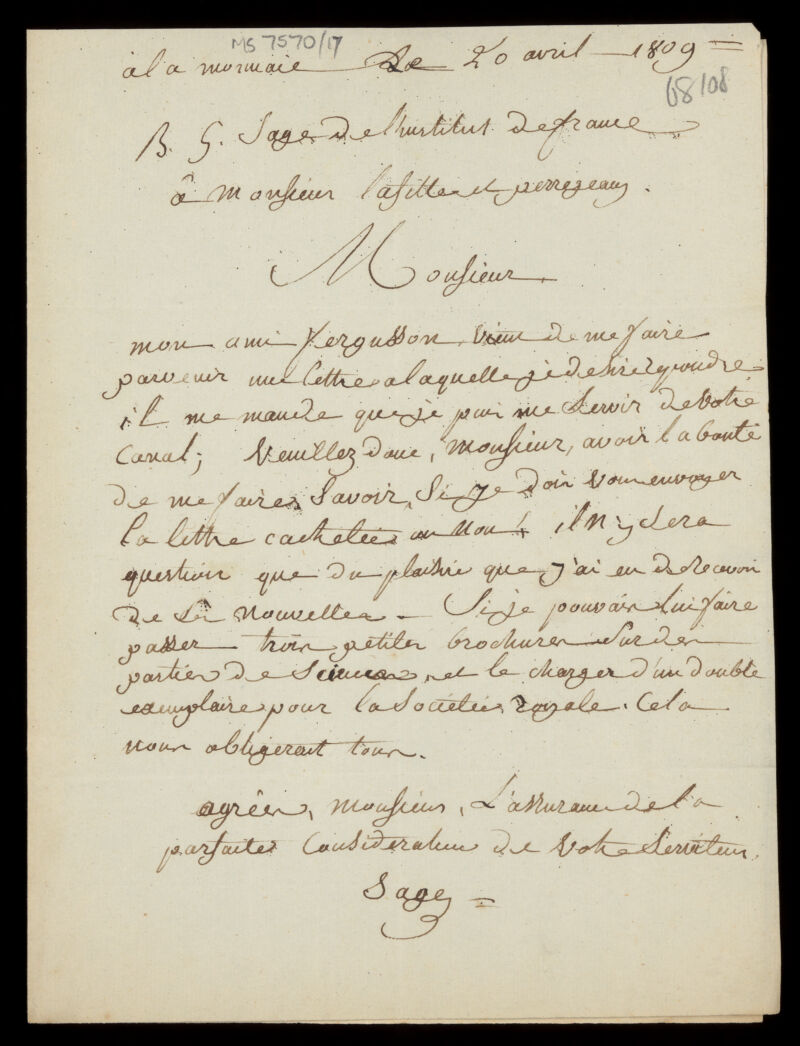 MS 7570/17
à la monnaie Le 20 avril 1809
68/08
B. G. Sage de l'institut de france
à monsieur lafitte et perregeaux.
Monsieur
mon ami fergusson vient de me faire
parvenir une lettre a laquelle je desire repondre
il me mande que je puis me servir de votre
Canal; veuillez donc, monsieur, avoir la bonté
de me faire savoir, si je dois vous envoyer
la lettre cachetée ou non; il n'y sera
question que du plaisir que j'ai eu de recevoir
de ses nouvelles - Si je pouvais lui faire
passer trois petites brochures sur des
parties de sciences, et le charger d'un double
exemplaire pour la societée royale. Cela
nous obligerait tous.
agréer, monsieur, L'assurance de la
parfaite Consideration de votre Serviteur.
Sage =